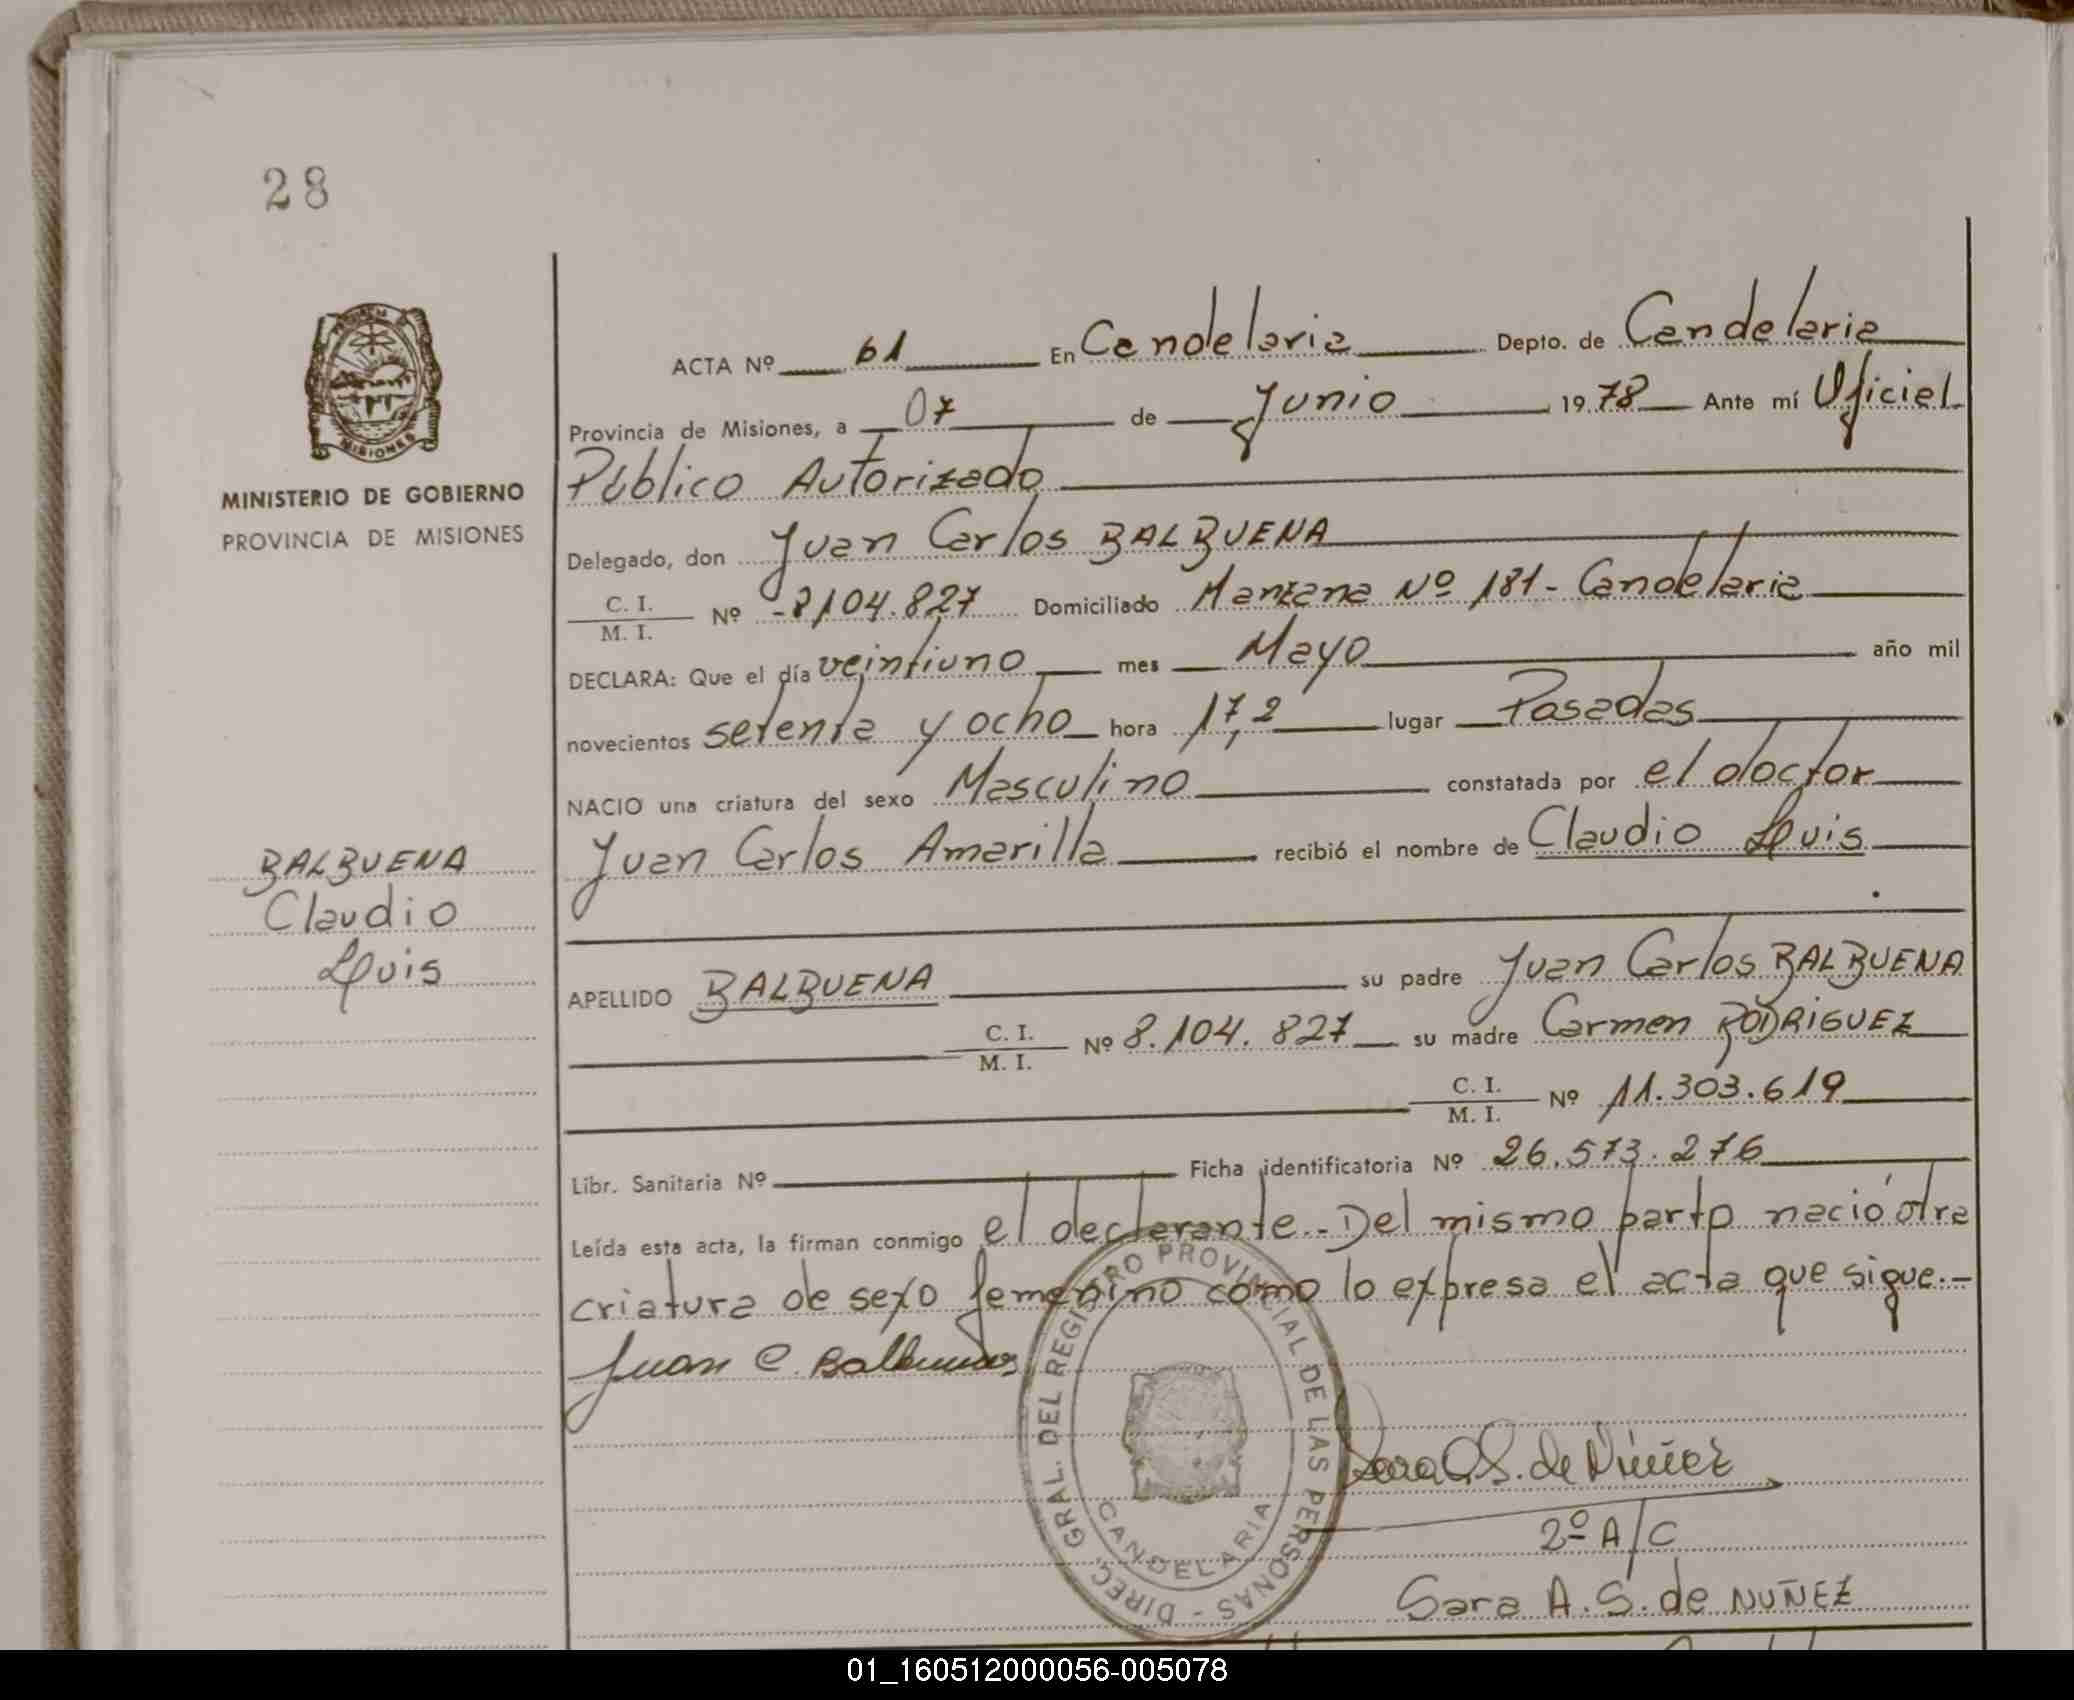 28
MINISTERIO DE GOBIERNO
PROVINCIA DE MISIONES
BALBUENA
Claudio
Luis
ACTA Nº 61 En Candelaria Depto. de Candelaria
Provincia de Misiones, a 07 de Junio 1978 Ante mí Oficial
Público Autorizado
Delegado, don Juan Carlos BALBUENA
C. I. / M. I. Nº -8104.827 Domiciliado Manzana Nº 181- Candelaria
DECLARA: Que el día veintiuno mes Mayo año mil
novecientos setenta y ocho hora 17,2 lugar Posadas
NACIO una criatura del sexo Masculino constatada por el doctor
Juan Carlos Amarilla recibió el nombre de Claudio Luis
APELLIDO BALBUENA su padre Juan Carlos BALBUENA
C. I. / M. I. Nº 8.104.827 su madre Carmen RODRIGUEZ
C. I. / M. I. Nº 11.303.619
Libr. Sanitaria Nº Ficha identificatoria Nº 26.573.276
Leída esta acta, la firman conmigo el declarante.- Del mismo parto nació otra
criatura de sexo femenino como lo expresa el acta que sigue.-
Juan C. Balbuena
DIREC. GRAL. DEL REGISTRO PROVINCIAL DE LAS PERSONAS -
CANDELARIA
Sara A. S. de Núñez
2º A/C
Sara A. S. de NUÑEZ
01_160512000056-005078